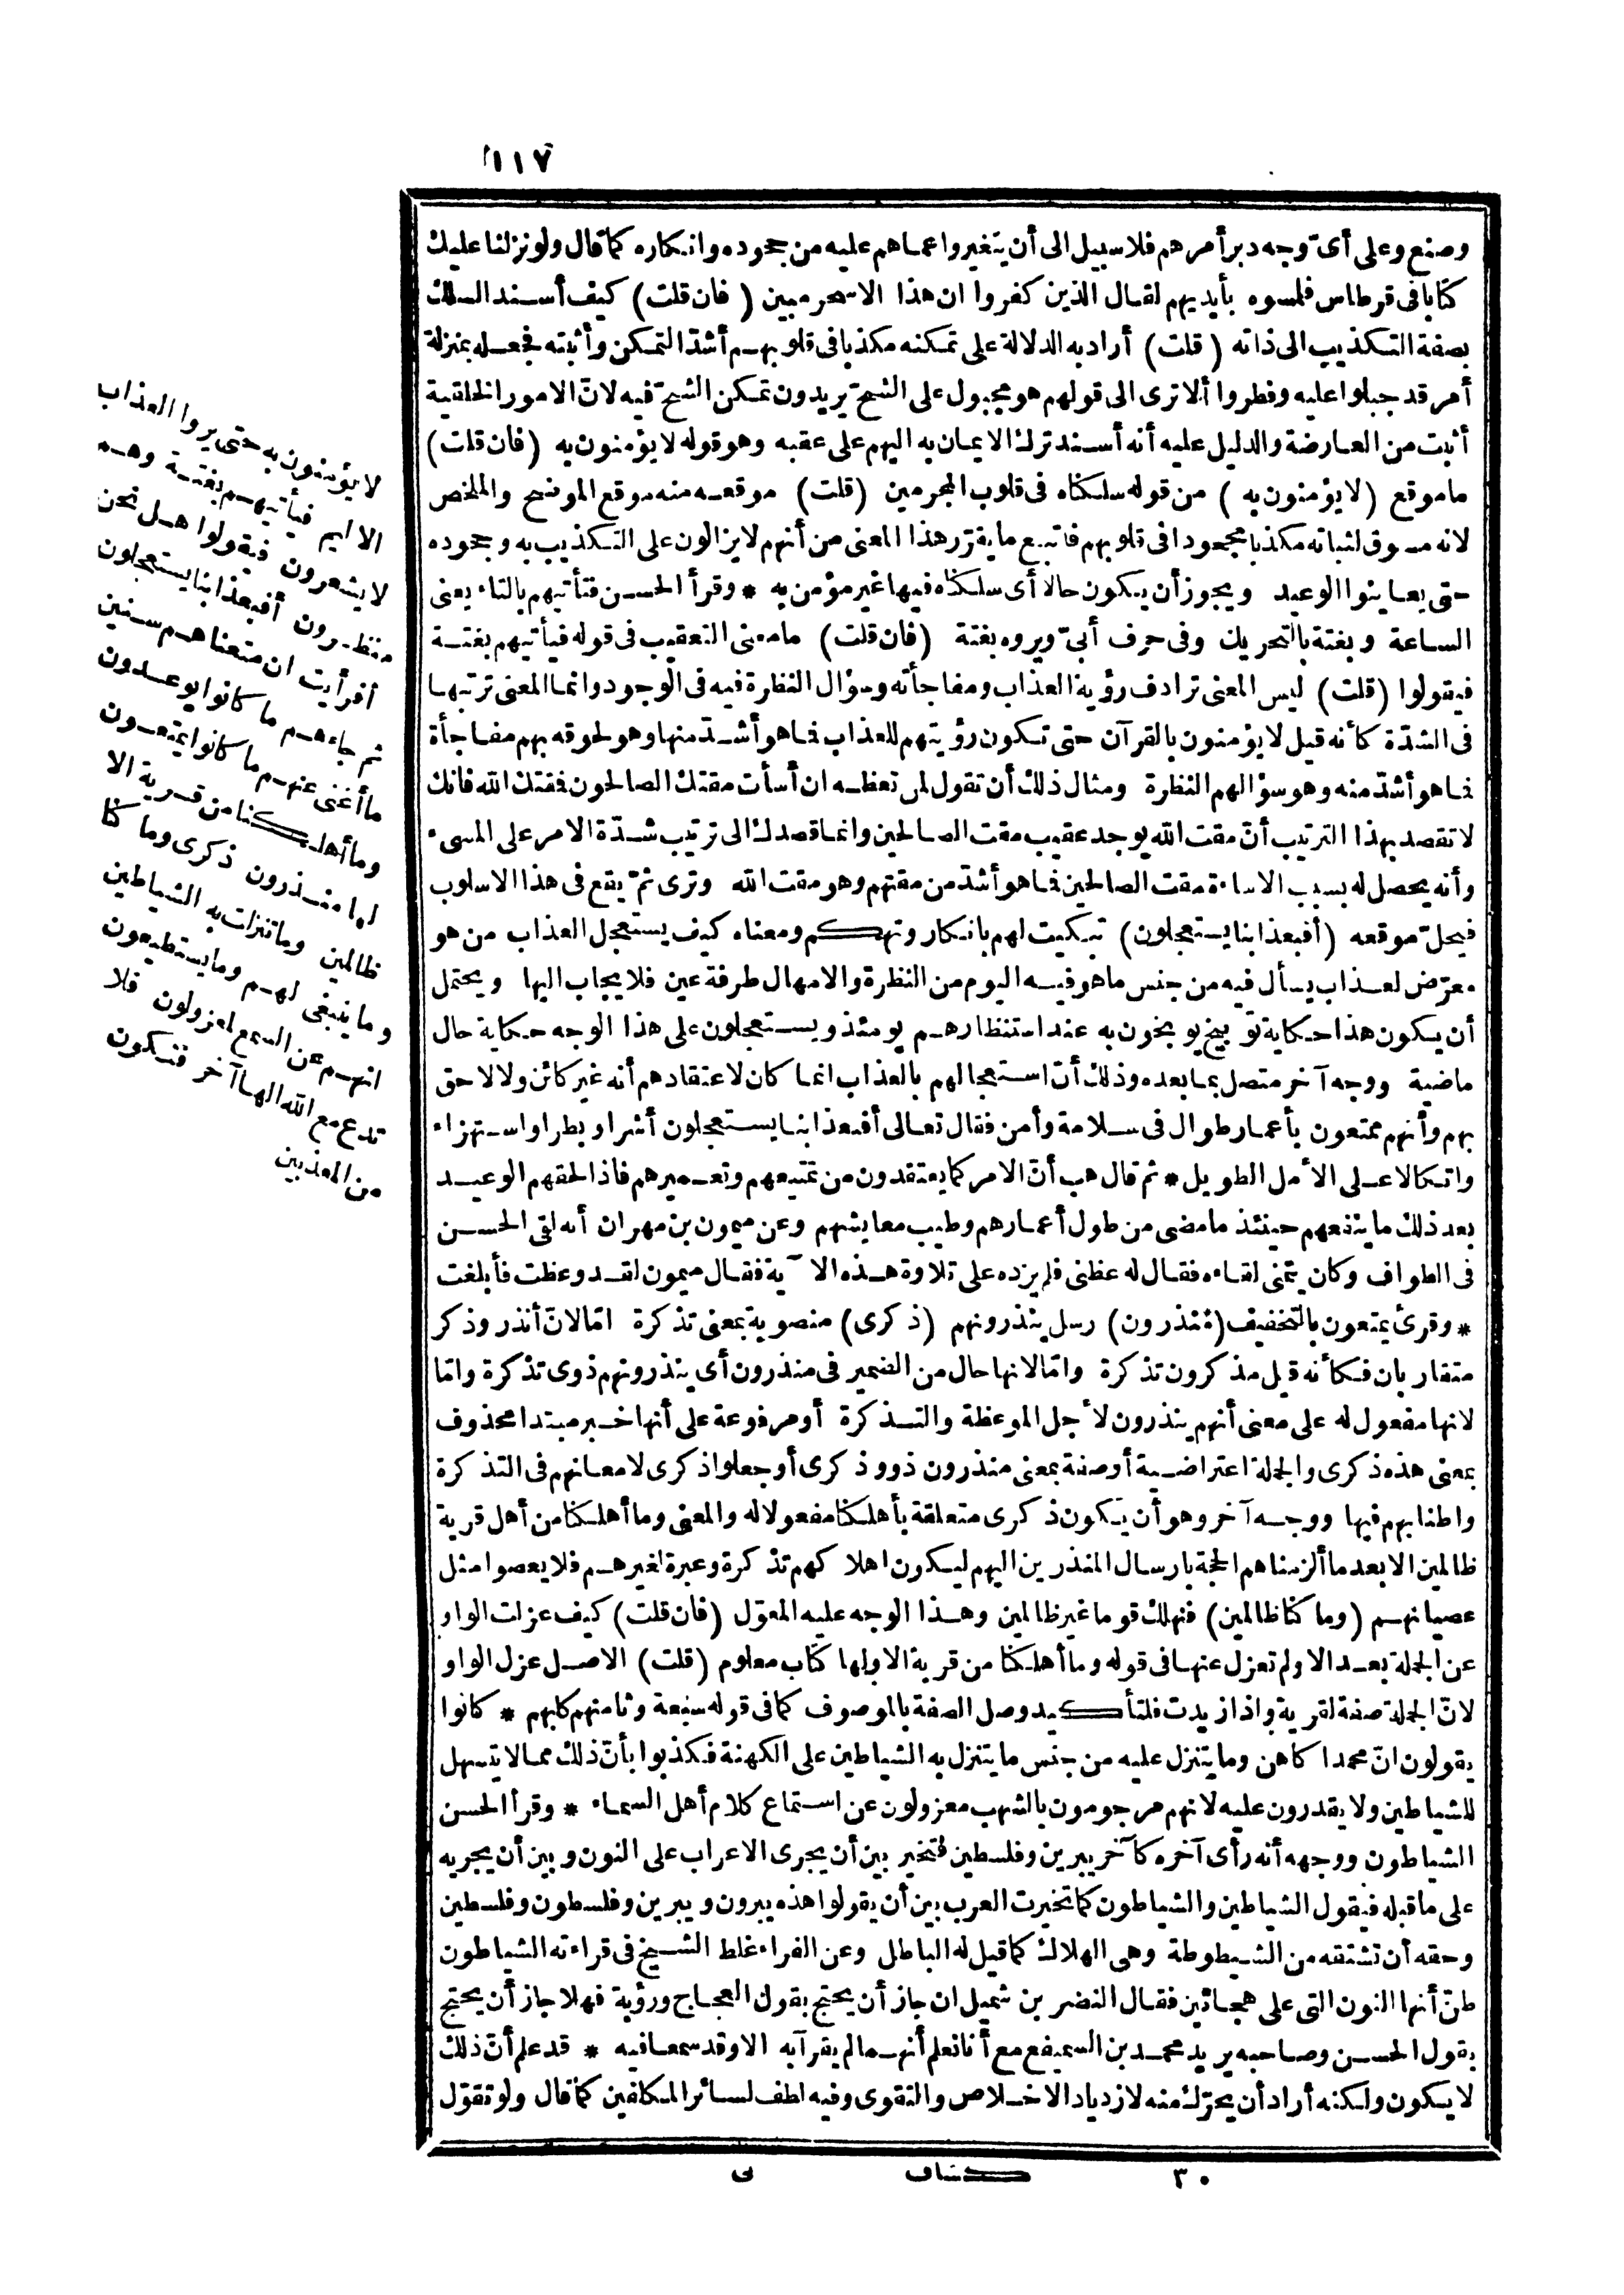 ١١٧
وصنع وعلى أىّ وجه دبر أمرهم فلا سبيل الى أن يتغيروا عماهم عليه من جحوده وانكاره كما قال ولو نزلنا عليك
كتابا فى قرطاس فلمسوه بأيديهم لقال الذين كفروا ان هذا الاسحر مبين (فان قلت) كيف أسند السلك
بصفة التكذيب الى ذاته (قلت) أراد به الدلالة على تمكنه مكذبا فى قلوبهم أشدّ التمكن وأثبته فجعله بمنزلة
أمر قد جبلوا عليه وفطروا ألا ترى الى قولهم هو مجبول على الشحّ يريدون تمكن الشحّ فيه لانّ الامور الخلقية
أثبت من العارضة والدليل عليه أنه أسند ترك الايمان به اليهم على عقبه وهو قوله لا يؤمنون به (فان قلت)
ما موقع (لا يؤمنون به) من قوله سلكناه فى قلوب المجرمين (قلت) موقعه منه موقع الموضح والملخص
لانه مسوق لثباته مكذبا مجحودا فى قلوبهم فاتبع ما يقرّر هذا المعنى من أنهم لا يزالون على التكذيب به وجحوده
حتى يعاينوا الوعيد ويجوز أن يكون حالا أى سلكناه فيها غير مؤمن به * وقرأ الحسن فتأتيهم بالتاء يعنى
الساعة وبغتة بالتحريك وفى حرف أبىّ ويروه بغتة (فان قلت) ما معنى التعقيب فى قوله فيأتيهم بغتة
فيقولوا (قلت) ليس المعنى ترادف رؤية العذاب ومفاجأته وسؤال النظرة فيه فى الوجود وانما المعنى ترتبها
فى الشدّة كأنه قيل لا يؤمنون بالقرآن حتى تكون رؤيتهم للعذاب فما هو أشدّ منها وهو لحوقه بهم مفاجأة
فما هو أشدّ منه وهو سؤالهم النظرة ومثال ذلك أن تقول لمن تعظه ان أسأت مقتك الصالحون فمقتك الله فانك
لا تقصد بهذا الترتيب أنّ مقت الله يوجد عقيب مقت الصالحين وانما قصدك الى ترتيب شدّة الامر على المسىء
وأنه يحصل له بسبب الاساءة مقت الصالحين فما هو أشدّ من مقتهم وهو مقت الله وترى ثمّ يقع فى هذا الاسلوب
فيحلّ موقعه (أفبعذابنا يستعجلون) تبكيت لهم بانكار وتهكم ومعناه كيف يستعجل العذاب من هو
معرّض لعذاب يسأل فيه من جنس ما هو فيه اليوم من النظرة والامهال طرفة عين فلا يجاب اليها ويحتمل
أن يكون هذا حكاية توبيخ يوبخون به عند استنظارهم يومئذ ويستعجلون على هذا الوجه حكاية حال
ماضية ووجه آخر متصل بما بعده وذلك أنّ استعجالهم بالعذاب انما كان لاعتقادهم أنه غير كائن ولا لاحق
بهم وأنهم ممتعون بأعمار طوال فى سلامة وأمن فقال تعالى أفبعذابنا يستعجلون أشرا وبطرا واستهزاء
واتكالا على الأمل الطويل * ثم قال هب أنّ الامر كما يعتقدون من تمتيعهم وتعميرهم فاذا لحقهم الوعيد
بعد ذلك ما ينفعهم حينئذ ما مضى من طول أعمارهم وطيب معايشهم وعن ميمون بن مهران أنه لقى الحسن
فى الطواف وكان يتمنى لقاءه فقال له عظنى فلم يزده على تلاوة هذه الآية فقال ميمون لقد وعظت فأبلغت
* وقرئ يمتعون بالتخفيف (منذرون) رسل ينذرونهم (ذكرى) منصوبة بمعنى تذكرة امّا لانّ أنذر وذكر
متقاربان فكأنه قيل مذكرون تذكرة وامّا لانها حال من الضمير فى منذرون أى ينذرونهم ذوى تذكرة وامّا
لانها مفعول له على معنى أنهم ينذرون لأجل الموعظة والتذكرة أو مرفوعة على أنها خبر مبتدا محذوف
بمعنى هذه ذكرى والجملة اعتراضية أو صفة بمعنى منذرون ذوو ذكرى أو جعلوا ذكرى لامعانهم فى التذكرة
واطنابهم فيها ووجه آخر وهو أن يكون ذكرى متعلقة بأهلكنا مفعولا له والمعنى وما أهلكنا من أهل قرية
ظالمين الا بعد ما ألزمناهم الحجة بارسال المنذرين اليهم ليكون اهلاكهم تذكرة وعبرة لغيرهم فلا يعصوا مثل
عصيانهم (وما كنا ظالمين) فنهلك قوما غير ظالمين وهذا الوجه عليه المعوّل (فان قلت) كيف عزلت الواو
عن الجملة بعد الا ولم تعزل عنها فى قوله وما أهلكنا من قرية الا ولها كتاب معلوم (قلت) الاصل عزل الواو
لانّ الجملة صفة لقرية واذا زيدت فلتأكيد وصل الصفة بالموصوف كما فى قوله سبعة وثامنهم كلبهم * كانوا
يقولون انّ محمدا كاهن وما يتنزل عليه من جنس ما يتنزل به الشياطين على الكهنة فكذبوا بأنّ ذلك مما لا يتسهل
للشياطين ولا يقدرون عليه لانهم مرجومون بالشهب معزولون عن استماع كلام أهل السماء * وقرأ الحسن
الشياطون ووجهه أنه رأى آخره كآخر يبرين وفلسطين فتخير بين أن يجرى الاعراب على النون وبين أن يجريه
على ما قبله فيقول الشياطين والشياطون كما تخيرت العرب بين أن يقولوا هذه يبرون ويبرين وفلسطون وفلسطين
وحقه أن تشتقه من الشيطوطة وهى الهلاك كما قيل له الباطل وعن الفراء غلط الشيخ فى قراءته الشياطون
ظنّ أنها النون التى على هجائين فقال النضر بن شميل ان جاز أن يحتج بقول العجاج ورؤبة فهلا جاز أن يحتج
بقول الحسن وصاحبه يريد محمد بن السميفع مع أنا نعلم أنهما لم يقرآ به الا وقد سمعا فيه * قد علم أنّ ذلك
لا يكون ولكنه أراد أن يحرّك منه لازدياد الاخلاص والتقوى وفيه لطف لسائر المكلفين كما قال ولو تقوّل
لا يؤمنون به حتى يروا العذاب
الاليم فيأتيهم بغتة وهم
لا يشعرون فيقولوا هل نحن
منظرون أفبعذابنا يستعجلون
أفرأيت ان متعناهم سنين
ثم جاءهم ما كانوا يوعدون
ما أغنى عنهم ما كانوا يمتعون
وما أهلكنا من قرية الا
لها منذرون ذكرى وما كنا
ظالمين وما تنزلت به الشياطين
وما ينبغى لهم وما يستطيعون
انهم عن السمع لمعزولون فلا
تدع مع الله الها آخر فتكون
من المعذبين
٣٠ كشاف نى